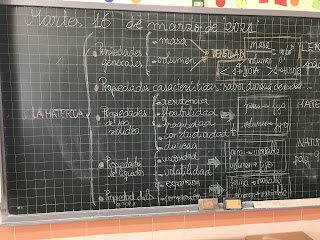 Martes 16 de marzo de 2021
Propiedades generales
• masa
• volumen
DENSIDAD
masa
volumen
LA MATERIA
Propiedades características: sabor, dureza, densidad...
Propiedades de los sólidos
• resistencia
• flexibilidad
• fragilidad
• conductividad
• dureza
forma → fija
volumen → fijo
Propiedades líquidos
• viscosidad
• volatilidad
forma → variable
volumen → fijo
Propiedad gases
• expansión
• compresión
forma → variable
LEN
MATE
NATU
pág. 9